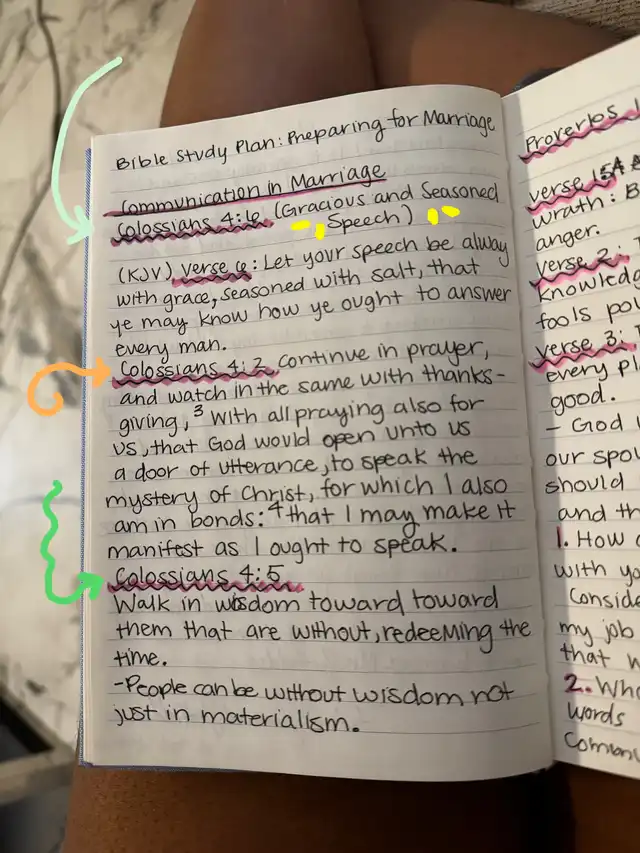 Bible Study Plan: Preparing for Marriage
Communication in Marriage
Colossians 4:6 (Gracious and Seasoned
Speech)
(KJV) verse 6: Let your speech be alway
with grace, seasoned with salt, that
ye may know how ye ought to answer
every man.
Colossians 4:2 Continue in prayer,
and watch in the same with thanks-
giving, 3 With all praying also for
us, that God would open unto us
a door of utterance, to speak the
mystery of Christ, for which I also
am in bonds: 4 that I may make it
manifest as I ought to speak.
Colossians 4:5
Walk in wisdom toward toward
them that are without, redeeming the
time.
-People can be without wisdom not
just in materialism.
Proverbs
verse
wrath: B
anger.
verse 2:
knowledg
fools pou
verse 3:
every pla
good.
- God
our spou
should
and th
1. How
with yo
Conside
my job
that w
2. Who
words
Commu